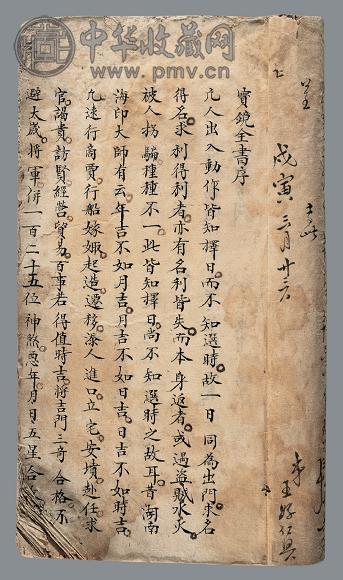 中华收藏网
www.pmv.cn
戊寅 三月廿
寶鏡全書序
凡人出入動作皆知擇日而不知選時故一日同為出門求名
得名求利得利者亦有名利皆失而本身返者或遇盜賊水火
被人拐騙種種不一此皆知擇日尚不知選時之故耳昔湖南
海印大師有云年吉不如月吉月吉不如日吉日吉不如時吉
凡遠行商賈行船嫁娶起造遷移潦人進口立宅安墳赴任求
官謁貴訪賢經營貿易百事若得值時吉將吉門三奇合格不
避太歲將軍併一百二十五位神煞惡年月日五星合